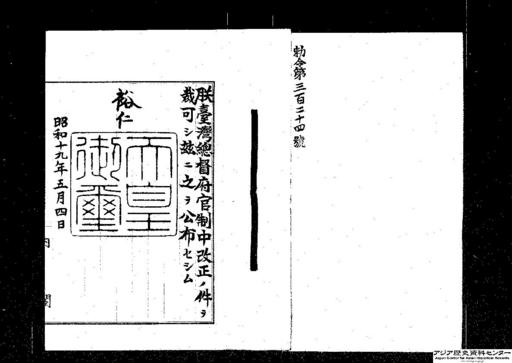 勅令第三百二十四號
朕臺灣總督府官制中改正ノ件ヲ
裁可シ玆ニ之ヲ公布セシム
裕仁
天皇
御璽
昭和十九年五月四日
内閣
アジア歴史資料センター
Japan Center for Asian Historical Records